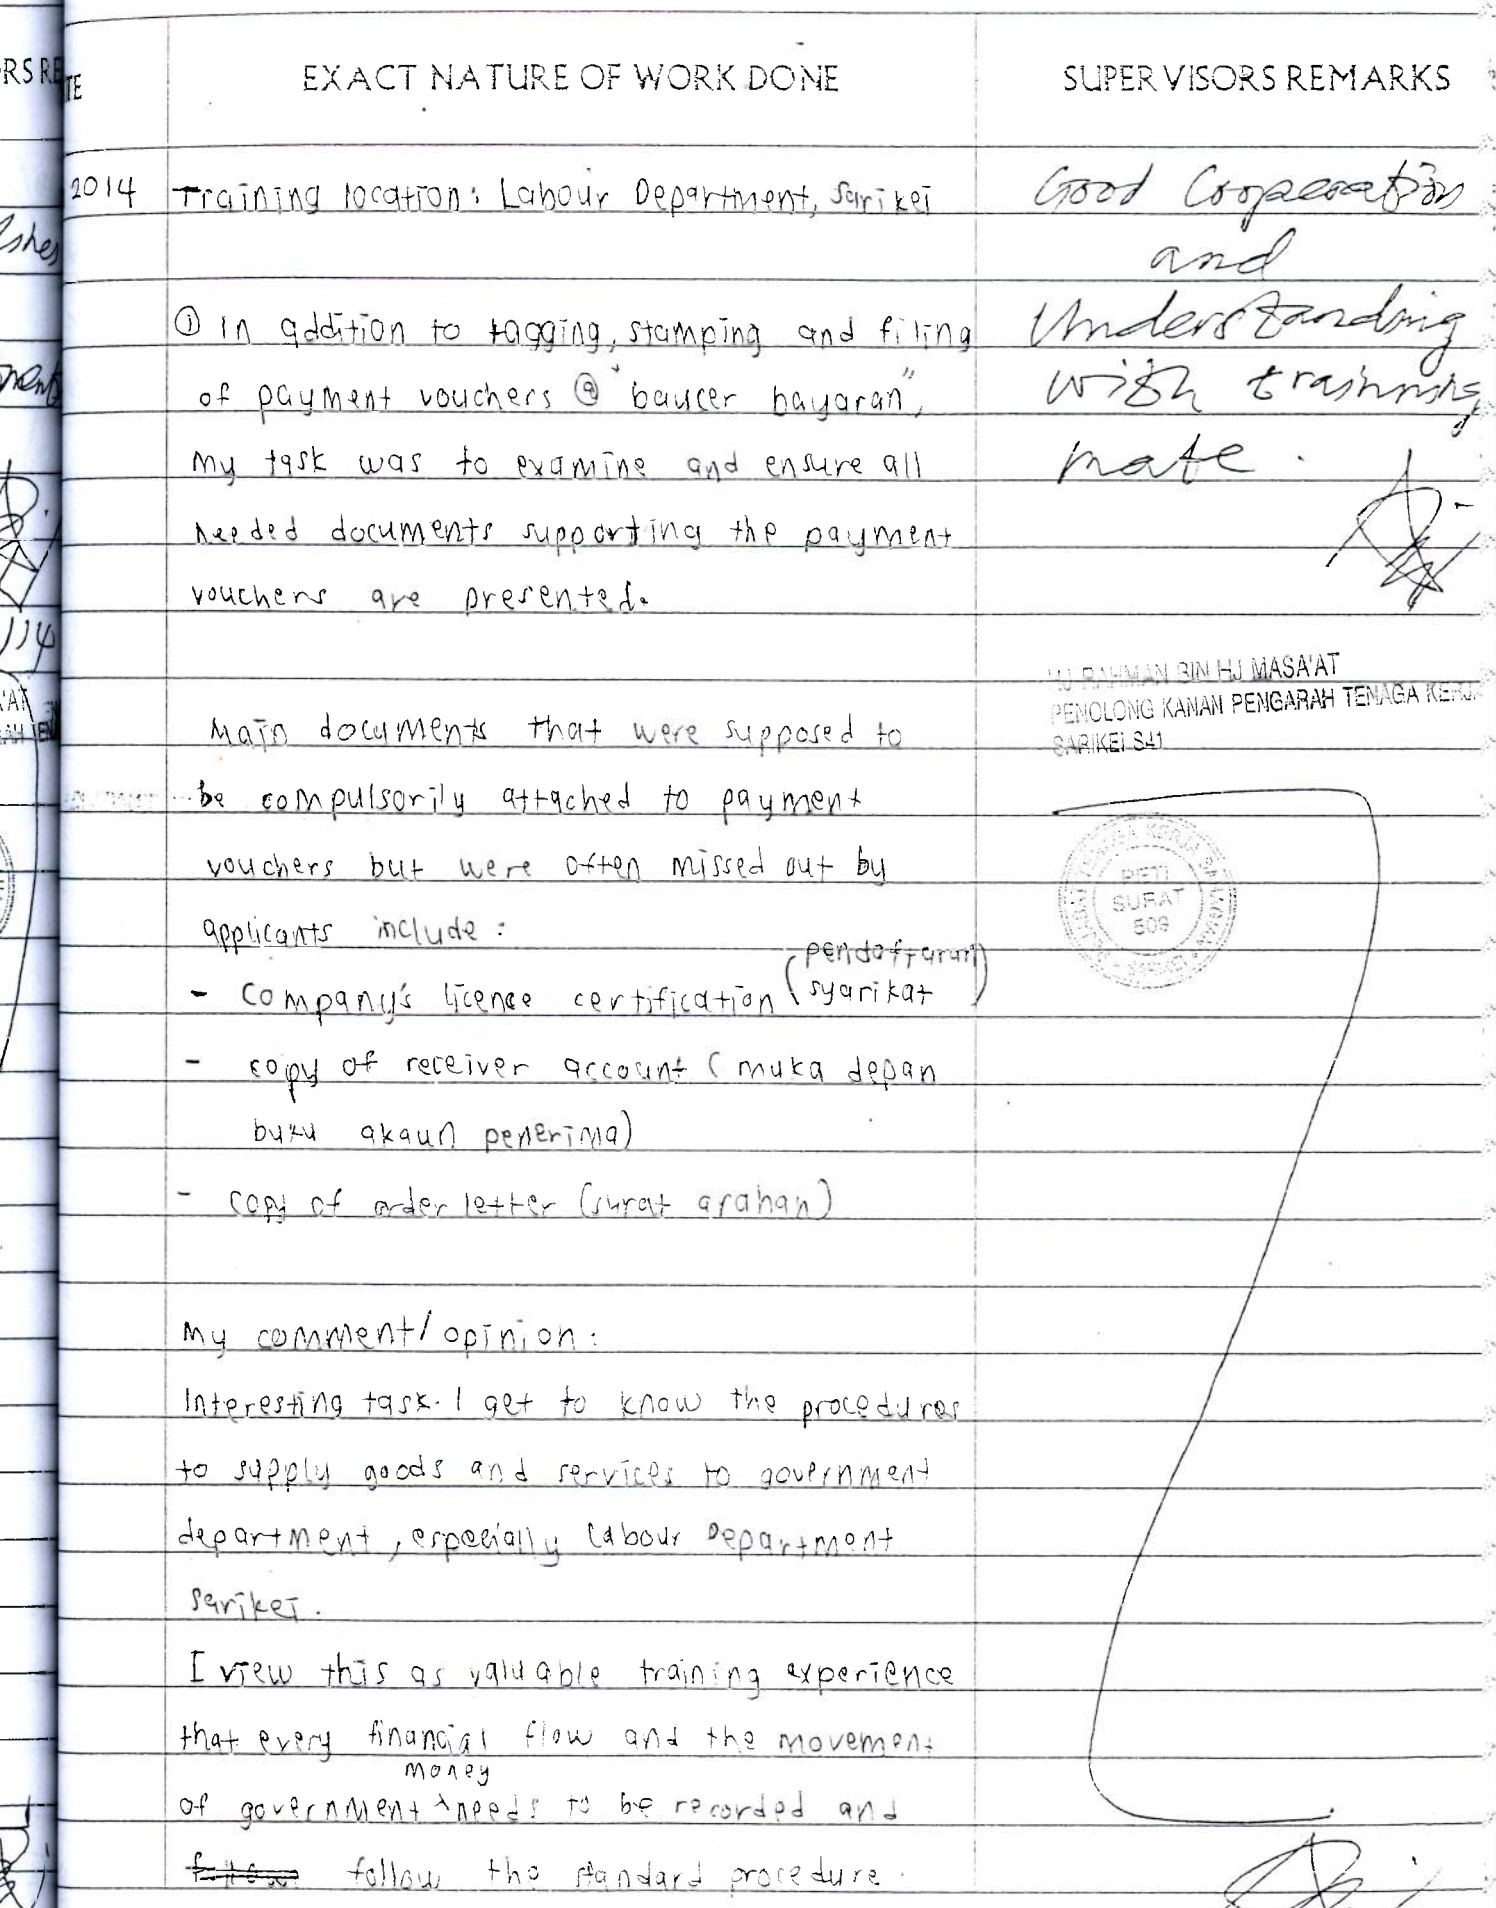 RS RE
TE
EXACT NATURE OF WORK DONE
SUPERVISORS REMARKS
2014
Training location: Labour Department, Sarikei
① In addition to tagging, stamping and filing
of payment vouchers @ "baucer bayaran",
my task was to examine and ensure all
needed documents supporting the payment
vouchers are presented.
Main documents that were supposed to
be compulsorily attached to payment
vouchers but were often missed out by
applicants include:
- Company's licence certification (pendaftaran
syarikat)
- copy of receiver account (muka depan
buku akaun penerima)
- copy of order letter (surat arahan)
My comment/opinion:
Interesting task. I get to know the procedures
to supply goods and services to government
department, especially Labour Department
Sarikei.
I view this as valuable training experience
that every financial flow and the movement
money
of government ^ needs to be recorded and
follow the standard procedure.
Good Cooperation
and
Understanding
with training
mate.
HJ RAHMAN BIN HJ MASA'AT
PENOLONG KANAN PENGARAH TENAGA KERJA
SARIKEI S41
PETI
SURAT
509